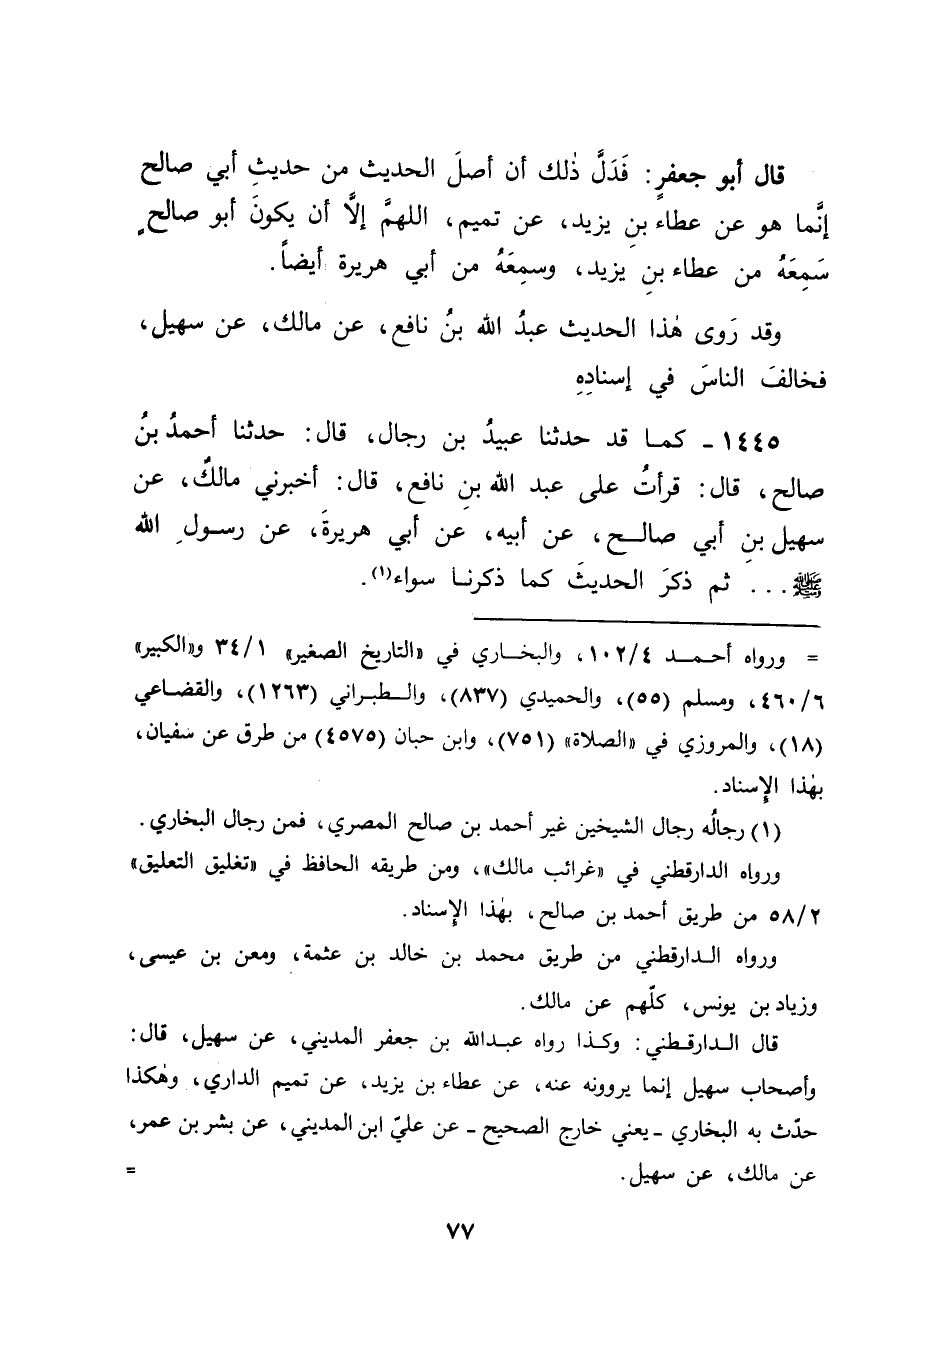 قال أبو جعفرٍ: فَدَلَّ ذٰلك أن أصلَ الحديث من حديثِ أبي صالح
إنَّما هو عن عطاء بنِ يزيد، عن تميم، اللهمَّ إلَّا أن يكونَ أبو صالحٍ
سَمِعَهُ من عطاء بنِ يزيد، وسمِعَهُ من أبي هريرة أيضاً.
وقد رَوى هٰذا الحديث عبدُ الله بنُ نافع، عن مالك، عن سهيل،
فخالفَ الناسَ في إسنادِهِ
١٤٤٥ ـ كما قد حدثنا عبيدُ بن رجال، قال: حدثنا أحمدُ بنُ
صالح، قال: قرأتُ على عبد الله بنِ نافع، قال: أخبرني مالكٌ، عن
سهيل بنِ أبي صالح، عن أبيه، عن أبي هريرةَ، عن رسولِ الله
ﷺ... ثم ذكرَ الحديثَ كما ذكرنا سواء(١).
= ورواه أحمد ١٠٢/٤، والبخاري في «التاريخ الصغير» ٣٤/١ و«الكبير»
٤٦٠/٦، ومسلم (٥٥)، والحميدي (٨٣٧)، والطبراني (١٢٦٣)، والقضاعي
(١٨)، والمروزي في «الصلاة» (٧٥١)، وابن حبان (٤٥٧٥) من طرق عن سفيان،
بهٰذا الإسناد.
(١) رجالُه رجال الشيخين غير أحمد بن صالح المصري، فمن رجال البخاري.
ورواه الدارقطني في «غرائب مالك»، ومن طريقه الحافظ في «تغليق التعليق»
٥٨/٢ من طريق أحمد بن صالح، بهٰذا الإسناد.
ورواه الدارقطني من طريق محمد بن خالد بن عثمة، ومعن بن عيسى،
وزياد بن يونس، كلّهم عن مالك.
قال الدارقطني: وكذا رواه عبدالله بن جعفر المديني، عن سهيل، قال:
وأصحاب سهيل إنما يروونه عنه، عن عطاء بن يزيد، عن تميم الداري، وهٰكذا
حدّث به البخاري ـ يعني خارج الصحيح ـ عن عليّ ابن المديني، عن بشر بن عمر،
عن مالك، عن سهيل. =
٧٧